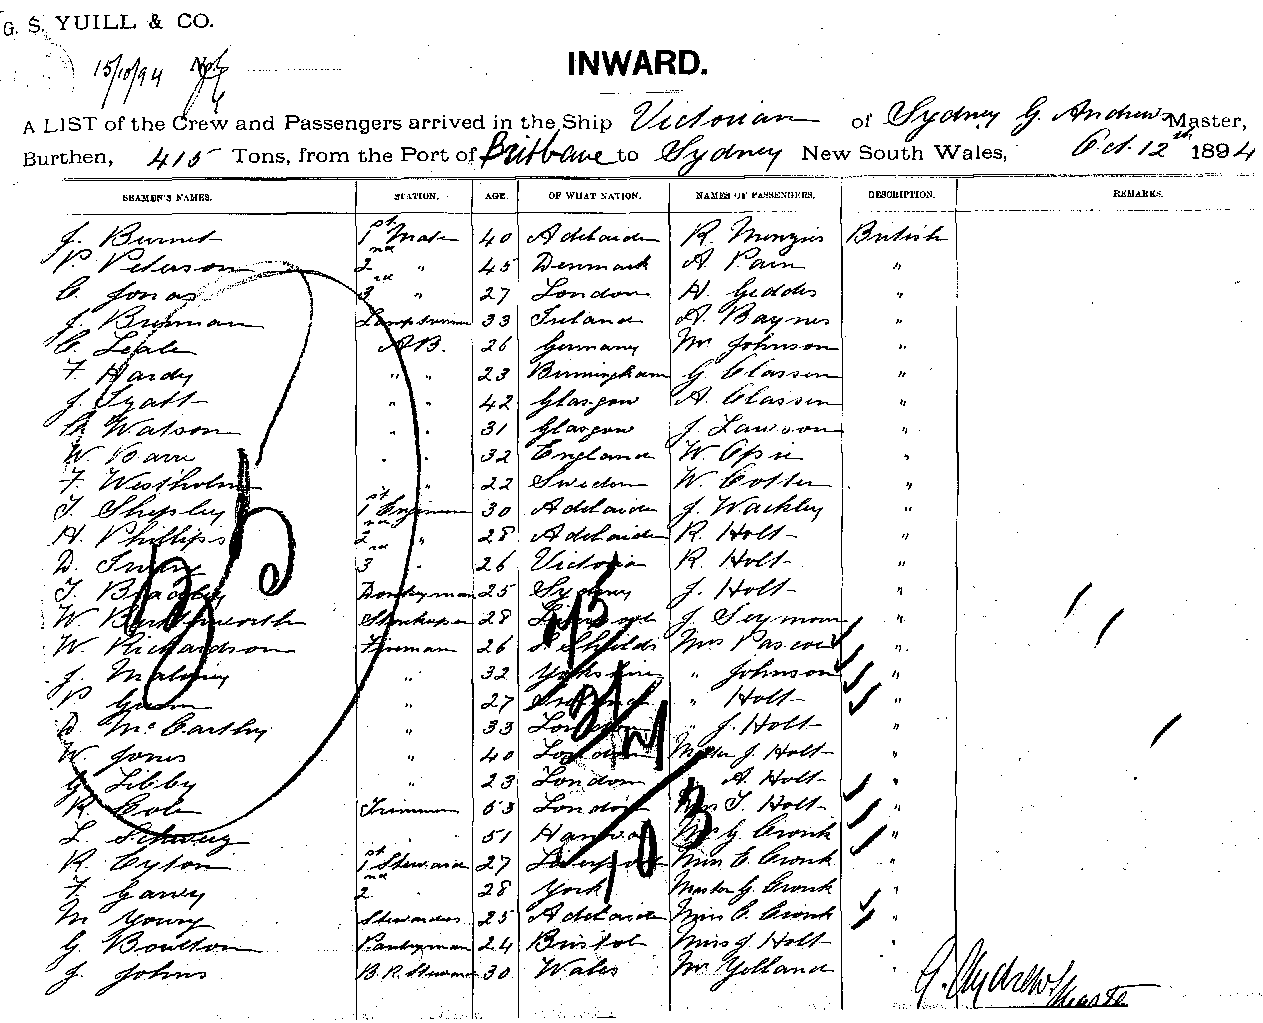 G. S. YUILL & CO.
15/10/94
INWARD.
A LIST of the Crew and Passengers arrived in the Ship Victorian of Sydney G. Andrews Master,
Burthen, 415 Tons, from the Port of Brisbane to Sydney New South Wales, Oct. 12th 1894
SEAMEN'S NAMES. STATION. AGE. OF WHAT NATION. NAMES OF PASSENGERS. DESCRIPTION. REMARKS.
J. Burnet 1st Mate 40 Adelaide R. Menzies British
P. Peterson 2nd " 45 Denmark A. Pain "
C. Jonas 3rd " 27 London H. Geddes "
J. Brennan Lamptrimmer 33 Ireland A. Baynes "
C. Leale A.B. 26 Germany Mr Johnson "
F. Hardy " " 23 Birmingham G Classen "
J. Lyatt " " 42 Glasgow A. Classen "
Watson " " 31 Glasgow J. Lawson "
W. Barr " " 32 England W. Opie "
F. Westholm " 22 Sweden W. Cotter "
T. Shepley 1st Engineer 30 Adelaide J. Wackley "
H. Phillips 2nd " 28 Adelaide R. Holt "
D. 3rd " 26 Victoria R. Holt "
T. Bradley Donkeyman 25 Sydney J. Holt "
W. Storekeeper 28 J. Seymour "
W. Richardson Fireman 26 S. Shields Mrs Pascoe "
J. Maloney " 32 Yorkshire " Johnson "
P " 27 " Holt "
D McCarthy " 33 London " J. Holt "
W. Jones " 40 London Master J. Holt "
G Libby " 23 London " A. Holt "
R. Cole Trimmer 53 London Miss T. Holt "
L. " 51 G Cronk "
R. Cyton 1st Steward 27 Liverpool Miss E. Cronk "
F. Garvey 2nd " 28 York Master G. Cronk "
M Young Stewardess 25 Adelaide Miss C. Cronk "
G. Boulton Pantryman 24 Bristol Miss J Holt "
J. Johns B.R. Steward 30 Wales Mr Yelland "
G. Andrews
Master